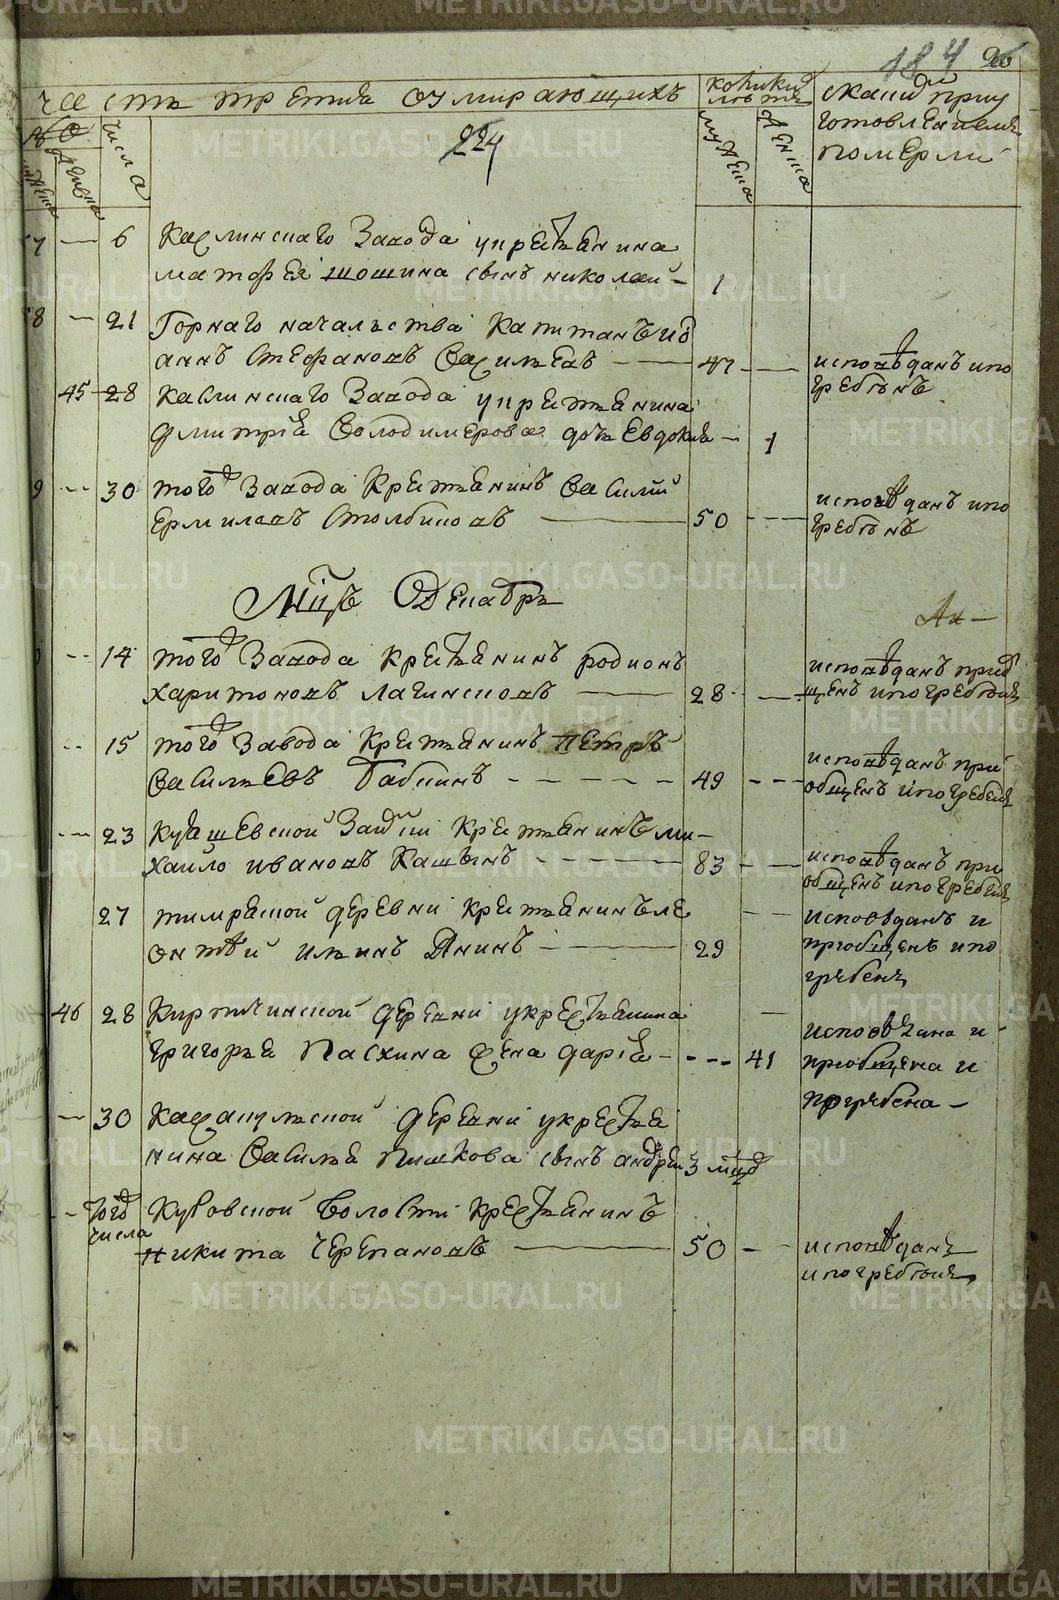 184
часть третия о умирающихъ
коликих лѣтъ
скакимъ приу
готовлениемъ
померли
числа
мужеска
женска
224
6 Каслинскаго Завода укрестьянина
матфея шошина сынъ николай - 1
21 Горнаго начальства Капитанъ ио
аннъ Стефановъ Васильевъ 47 исповѣданъ ипо
гребенъ
45 28 Каслинскаго Завода укрестьянина
дмитрия Володимерова дочь Евдокия - 1
30 того Завода Крестьянинъ Василий
Ермилавъ Столбиковъ 50 исповѣданъ ипо
гребенъ
Мцъ Декабрь
14 того Завода крестьянинъ родионъ
харитоновъ лагинсковъ 28 исповѣданъ приоб
щенъ ипогребенъ
15 того Завода Крестьянинъ Петръ
Васильевъ Бабкинъ 49 исповѣданъ при
общенъ ипогребенъ
23 Куяшевской Крестьянинъ ми-
хаило ивановъ Кашинъ 83 исповѣданъ при
общенъ ипогребенъ
27 деревни крестьянинъ ле
онтей ильинъ Янинъ 29 исповѣданъ и
приобщенъ ипо
гребенъ
46 28 Кирпичинской деревни укрестьянина
Григорья Паскина жена дария - 41 исповѣдана и
приобщена и
погребена -
30 деревни укрестья
нина Василья Пишкова сынъ андрей 3 мцъ
того числа Волости крестьянинъ
никита Черепановъ 50 исповѣданъ
ипогребенъ
METRIKI.GASO-URAL.RU